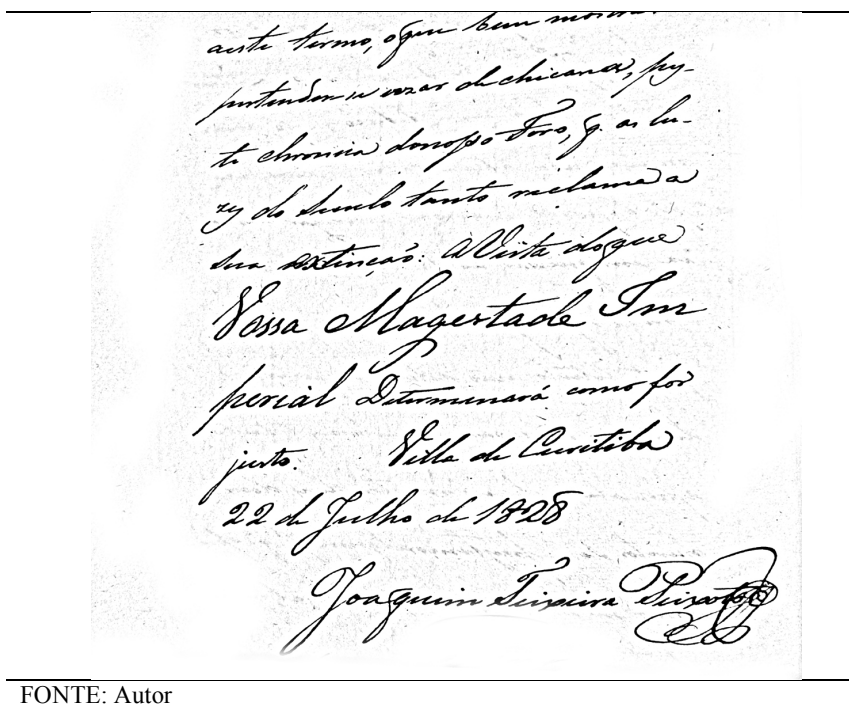 aeste termo, oque bem mostra
pertender-se uzar de chicanas, pes-
te chronica donosso Foro, q. as lu-
zes do seculo tanto reclama a
sua extincaõ. AVista doque
Vossa Magestade Im
perial Determinará como for
justo. Villa de Curitiba
22 de Julho de 1828
Joaquim Teixeira Peixoto
FONTE: Autor